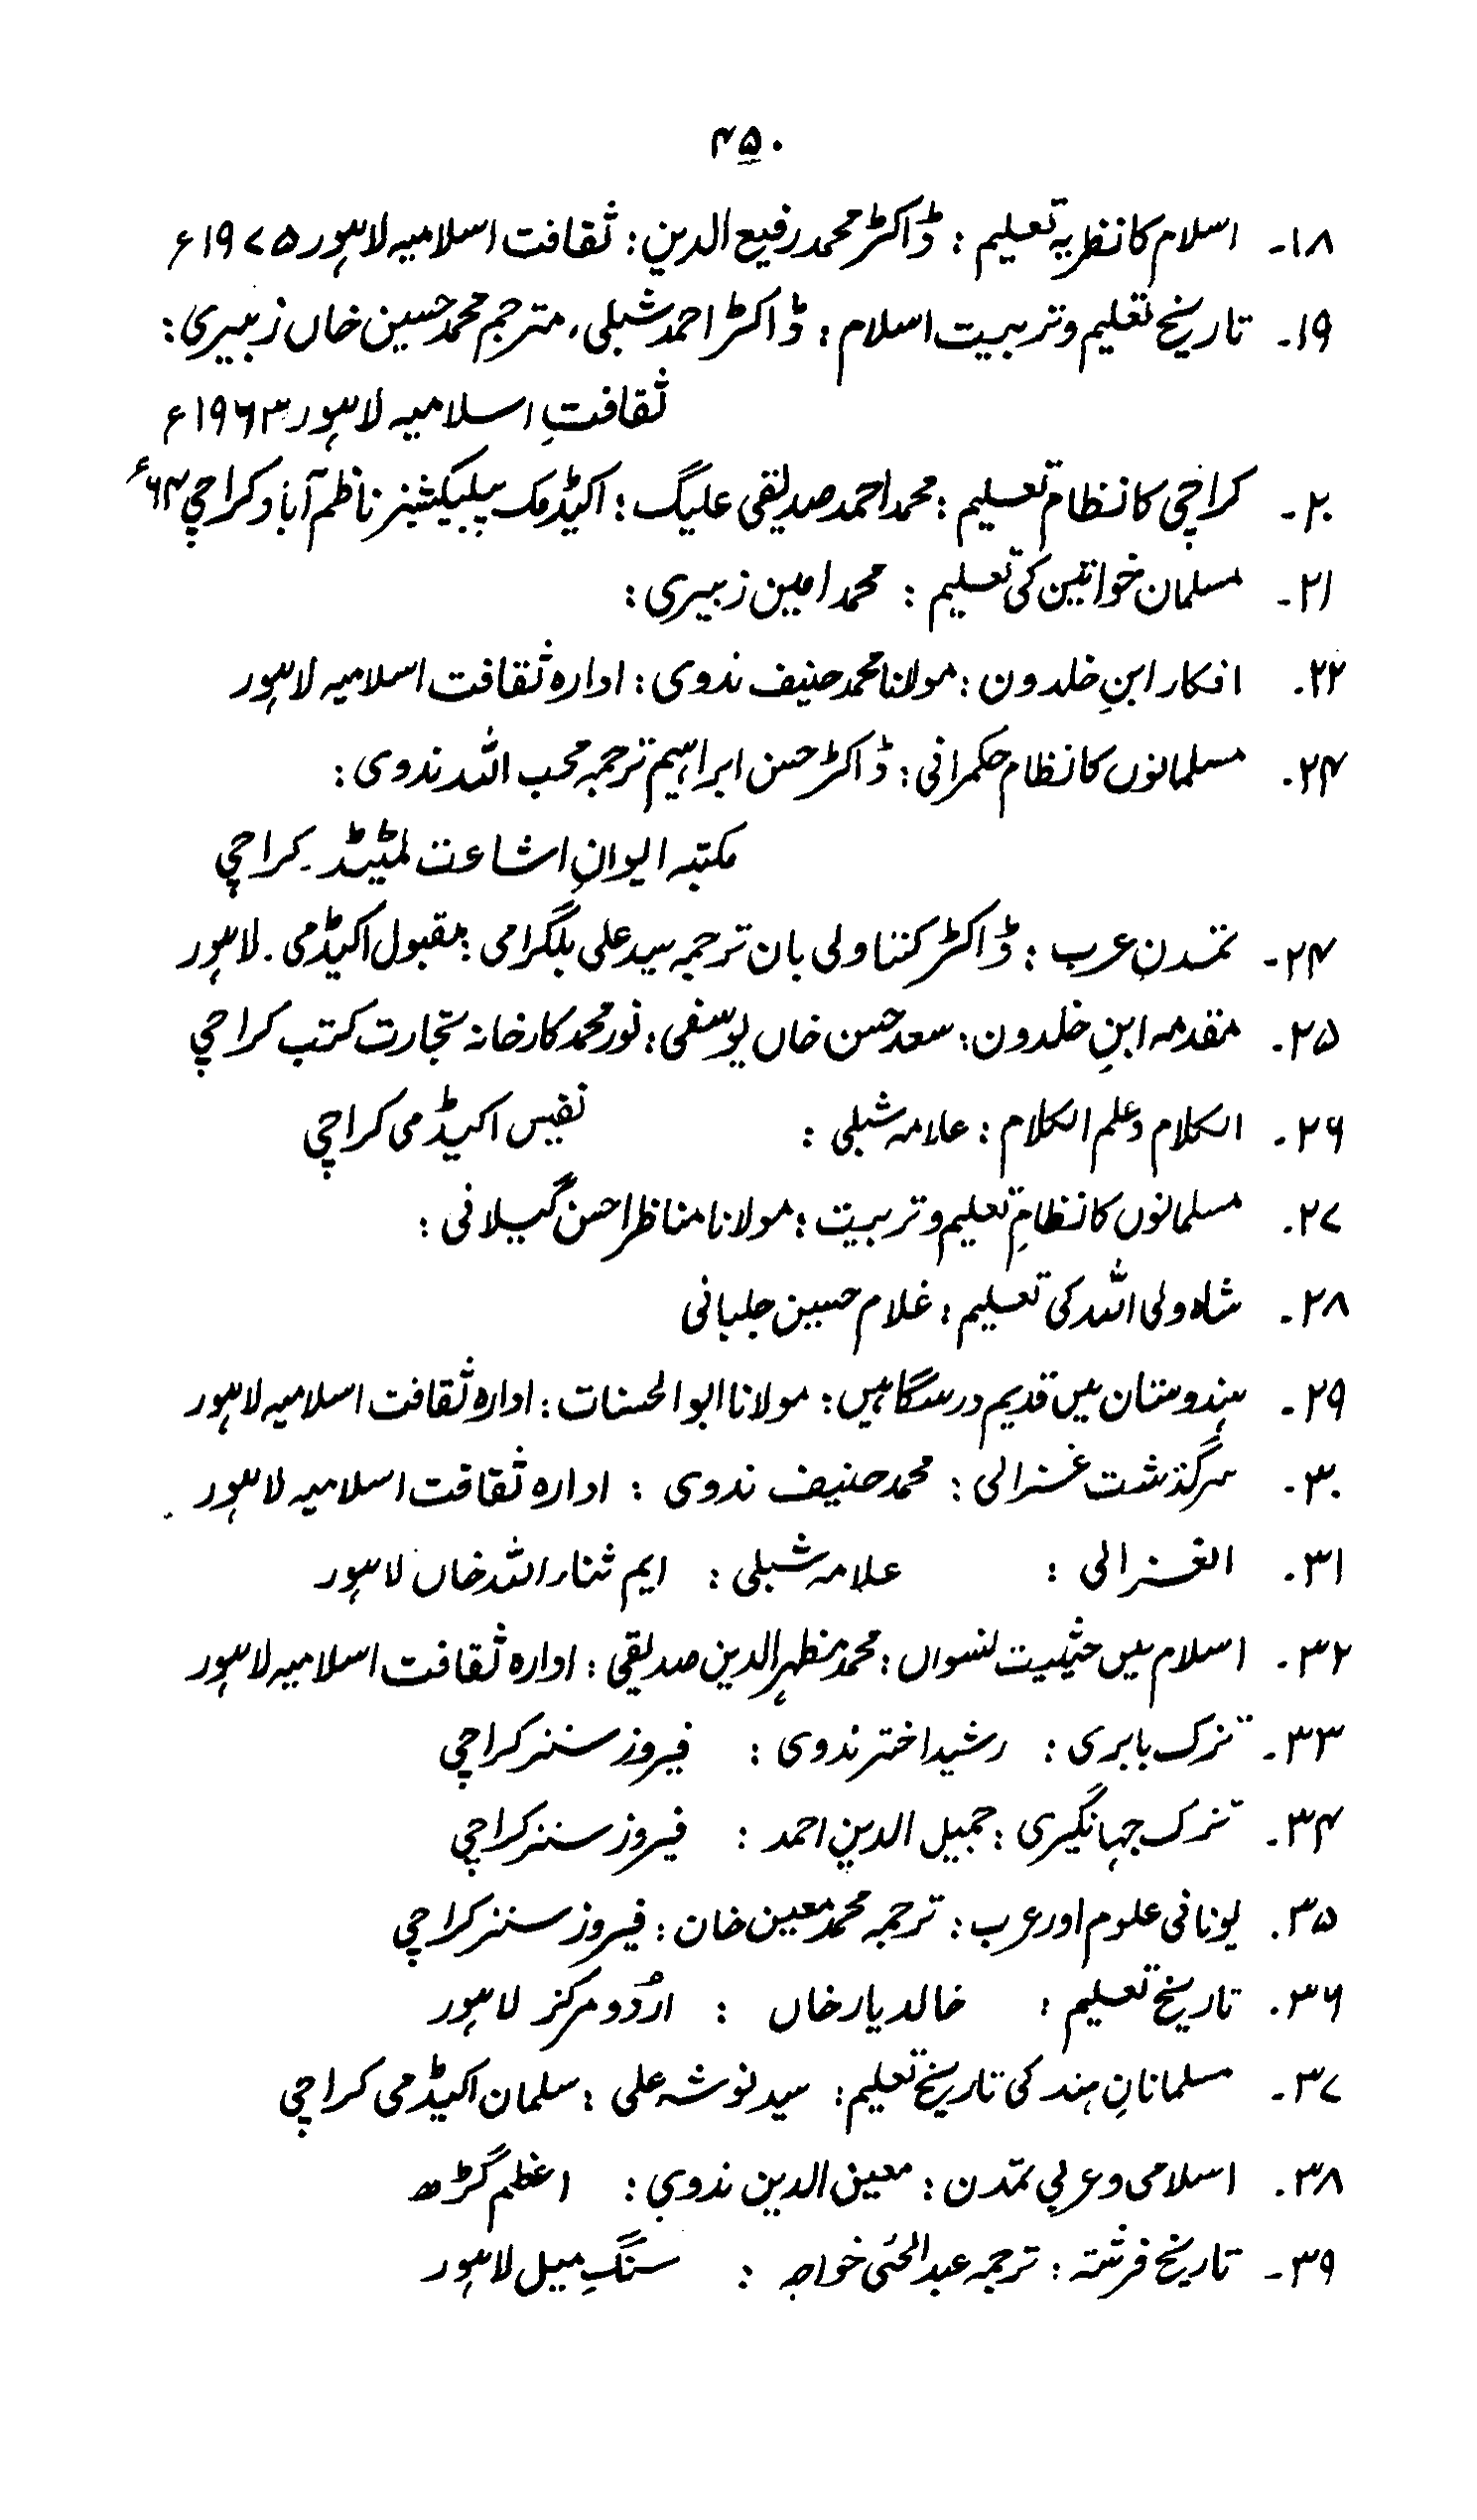 ۴۵۰
۱۸۔ اسلام کا نظریہ تعلیم : ڈاکٹر محمد رفیع الدین : ثقافت اسلامیہ لاہور ۱۹۷۵ء
۱۹۔ تاریخ تعلیم و تربیت اسلام : ڈاکٹر احمد شبلی، مترجم محمد حسین خاں زبیری :
ثقافتِ اسلامیہ لاہور ۱۹۶۳ء
۲۰۔ کراچی کا نظام تعلیم : محمد احمد صدیقی علیگ : اکیڈمک پبلیکیشنز ناظم آباد کراچی ۶۴ء
۲۱۔ مسلمان خواتین کی تعلیم : محمد امین زبیری :
۲۲۔ افکار ابنِ خلدون : مولانا محمد حنیف ندوی : ادارہ ثقافت اسلامیہ لاہور
۲۴۔ مسلمانوں کا نظام حکمرانی : ڈاکٹر حسن ابراہیم ترجمہ محب اللہ ندوی :
مکتبہ ایوانِ اشاعت لمٹیڈ۔ کراچی
۲۴۔ تمدنِ عرب : ڈاکٹر کستاولی بان ترجمہ سید علی بلگرامی : مقبول اکیڈمی۔ لاہور
۲۵۔ مقدمہ ابنِ خلدون : سعد حسن خاں یوسفی : نور محمد کارخانہ تجارت کتب کراچی
۲۶۔ الکلام و علم الکلام : علامہ شبلی : نفیس اکیڈمی کراچی
۲۷۔ مسلمانوں کا نظامِ تعلیم و تربیت : مولانا مناظر احسن گیلانی :
۲۸۔ شاہ ولی اللہ کی تعلیم : غلام حسین جلبانی
۲۹۔ ہندوستان میں قدیم درسگاہیں : مولانا ابو الحسنات : ادارہ ثقافت اسلامیہ لاہور
۳۰۔ سرگذشت غزالی : محمد حنیف ندوی : ادارہ ثقافت اسلامیہ لاہور
۳۱۔ الغزالی : علامہ شبلی : ایم ثناء اللہ خاں لاہور
۳۲۔ اسلام میں حیثیت نسواں : محمد مظہر الدین صدیقی : ادارہ ثقافت اسلامیہ لاہور
۳۳۔ تزک بابری : رشید اختر ندوی : فیروز سنز کراچی
۳۴۔ تزک جہانگیری : جمیل الدین احمد : فیروز سنز کراچی
۳۵۔ یونانی علوم اور عرب : ترجمہ محمد معین خان : فیروز سنز کراچی
۳۶۔ تاریخ تعلیم : خالد یار خاں : اُردو مرکز لاہور
۳۷۔ مسلمانانِ ہند کی تاریخ تعلیم : سید نوشہ علی : سلمان اکیڈمی کراچی
۳۸۔ اسلامی و عربی تمدن : معین الدین ندوی : اعظم گڑھ
۳۹۔ تاریخ فرشتہ : ترجمہ عبدالحئی خواجہ : سنگِ میل لاہور